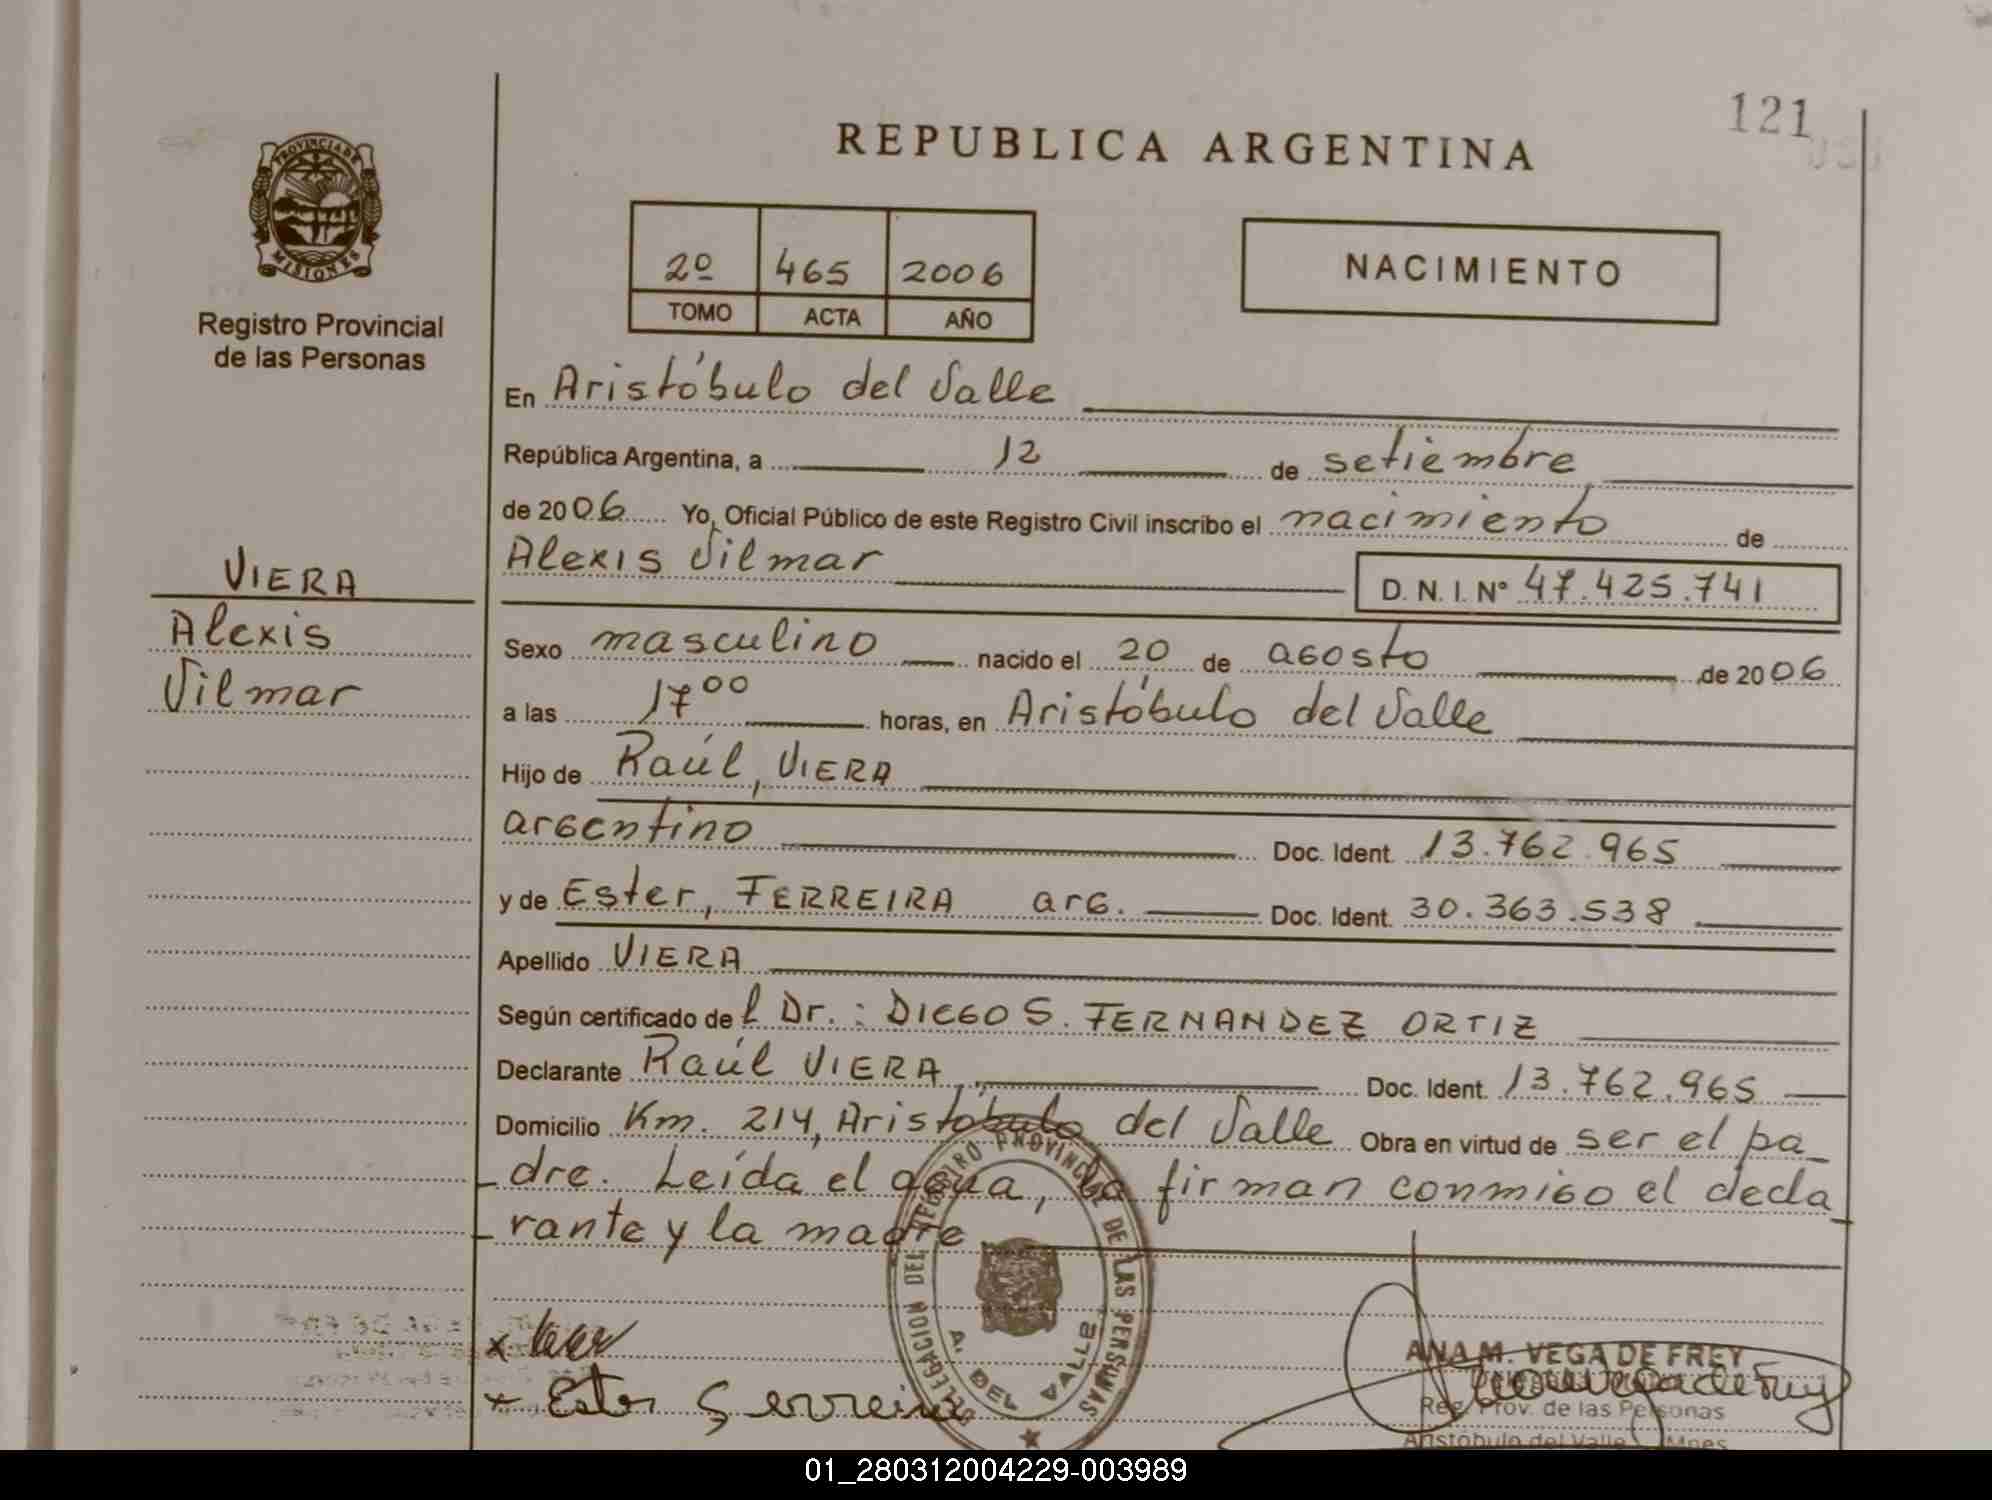 121
REPUBLICA ARGENTINA
PROVINCIA DE
MISIONES
Registro Provincial
de las Personas
2º 465 2006
TOMO ACTA AÑO
NACIMIENTO
En Aristóbulo del Valle
República Argentina, a 12 de setiembre
de 2006 Yo, Oficial Público de este Registro Civil inscribo el nacimiento de
Alexis Vilmar D. N. I. Nº 47.425.741
VIERA
Alexis
Vilmar
Sexo masculino nacido el 20 de agosto de 2006
a las 17⁰⁰ horas, en Aristóbulo del Valle
Hijo de Raúl, VIERA
argentino Doc. Ident. 13.762.965
y de Ester, FERREIRA arg. Doc. Ident. 30.363.538
Apellido VIERA
Según certificado del Dr.: DIEGO S. FERNANDEZ ORTIZ
Declarante Raúl VIERA, Doc. Ident. 13.762.965
Domicilio Km. 214, Aristóbulo del Valle Obra en virtud de ser el pa_
_dre. Leída el acta, la firman conmigo el decla_
_rante y la madre
DELEGACION DEL REGISTRO PROVINCIAL DE LAS PERSONAS
A. DEL VALLE
x
x Ester Ferreira
ANA M. VEGA DE FREY
Reg. Prov. de las Personas
Aristóbulo del Valle Mnes
01_280312004229-003989